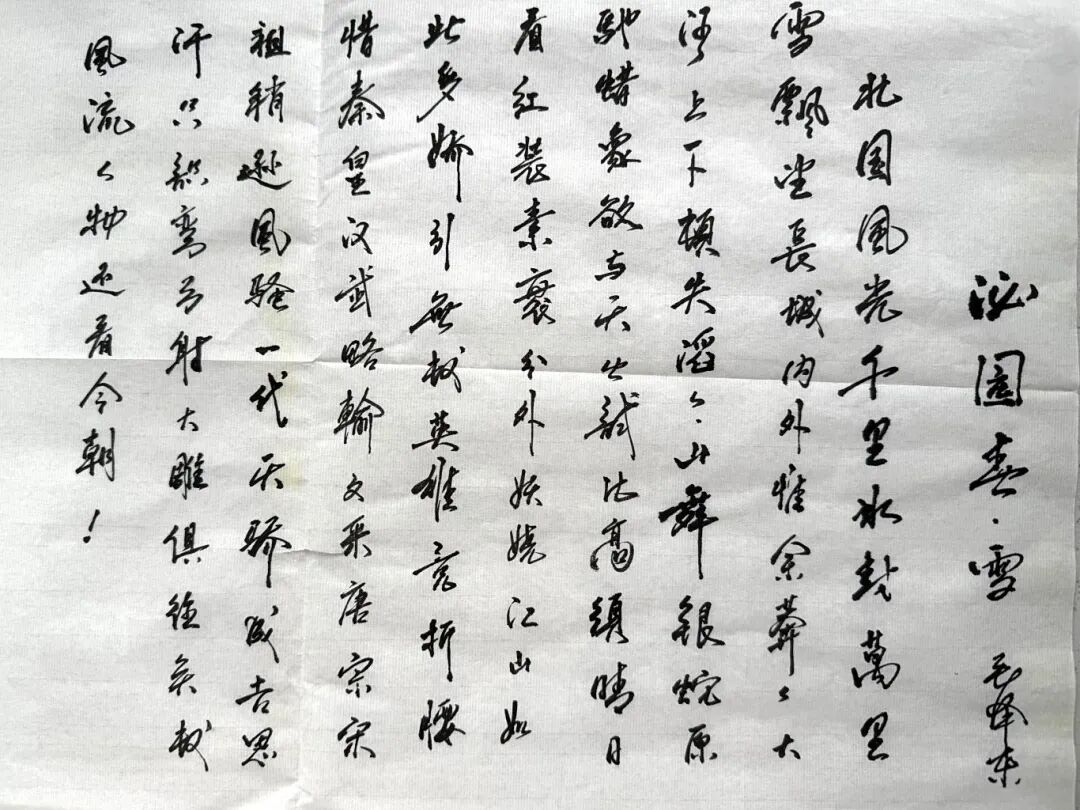 沁園春·雪 毛泽东
北国風光千里冰封萬里
雪飄望長城内外惟余莽々大
河上下頓失滔々山舞銀蛇原
馳蜡象欲与天公試比高須晴日
看红装素裹分外妖娆江山如
此多娇引無数英雄竞折腰
惜秦皇汉武略输文采唐宗宋
祖稍逊風骚一代天骄成吉思
汗只識弯弓射大雕俱往矣数
風流人物还看今朝！